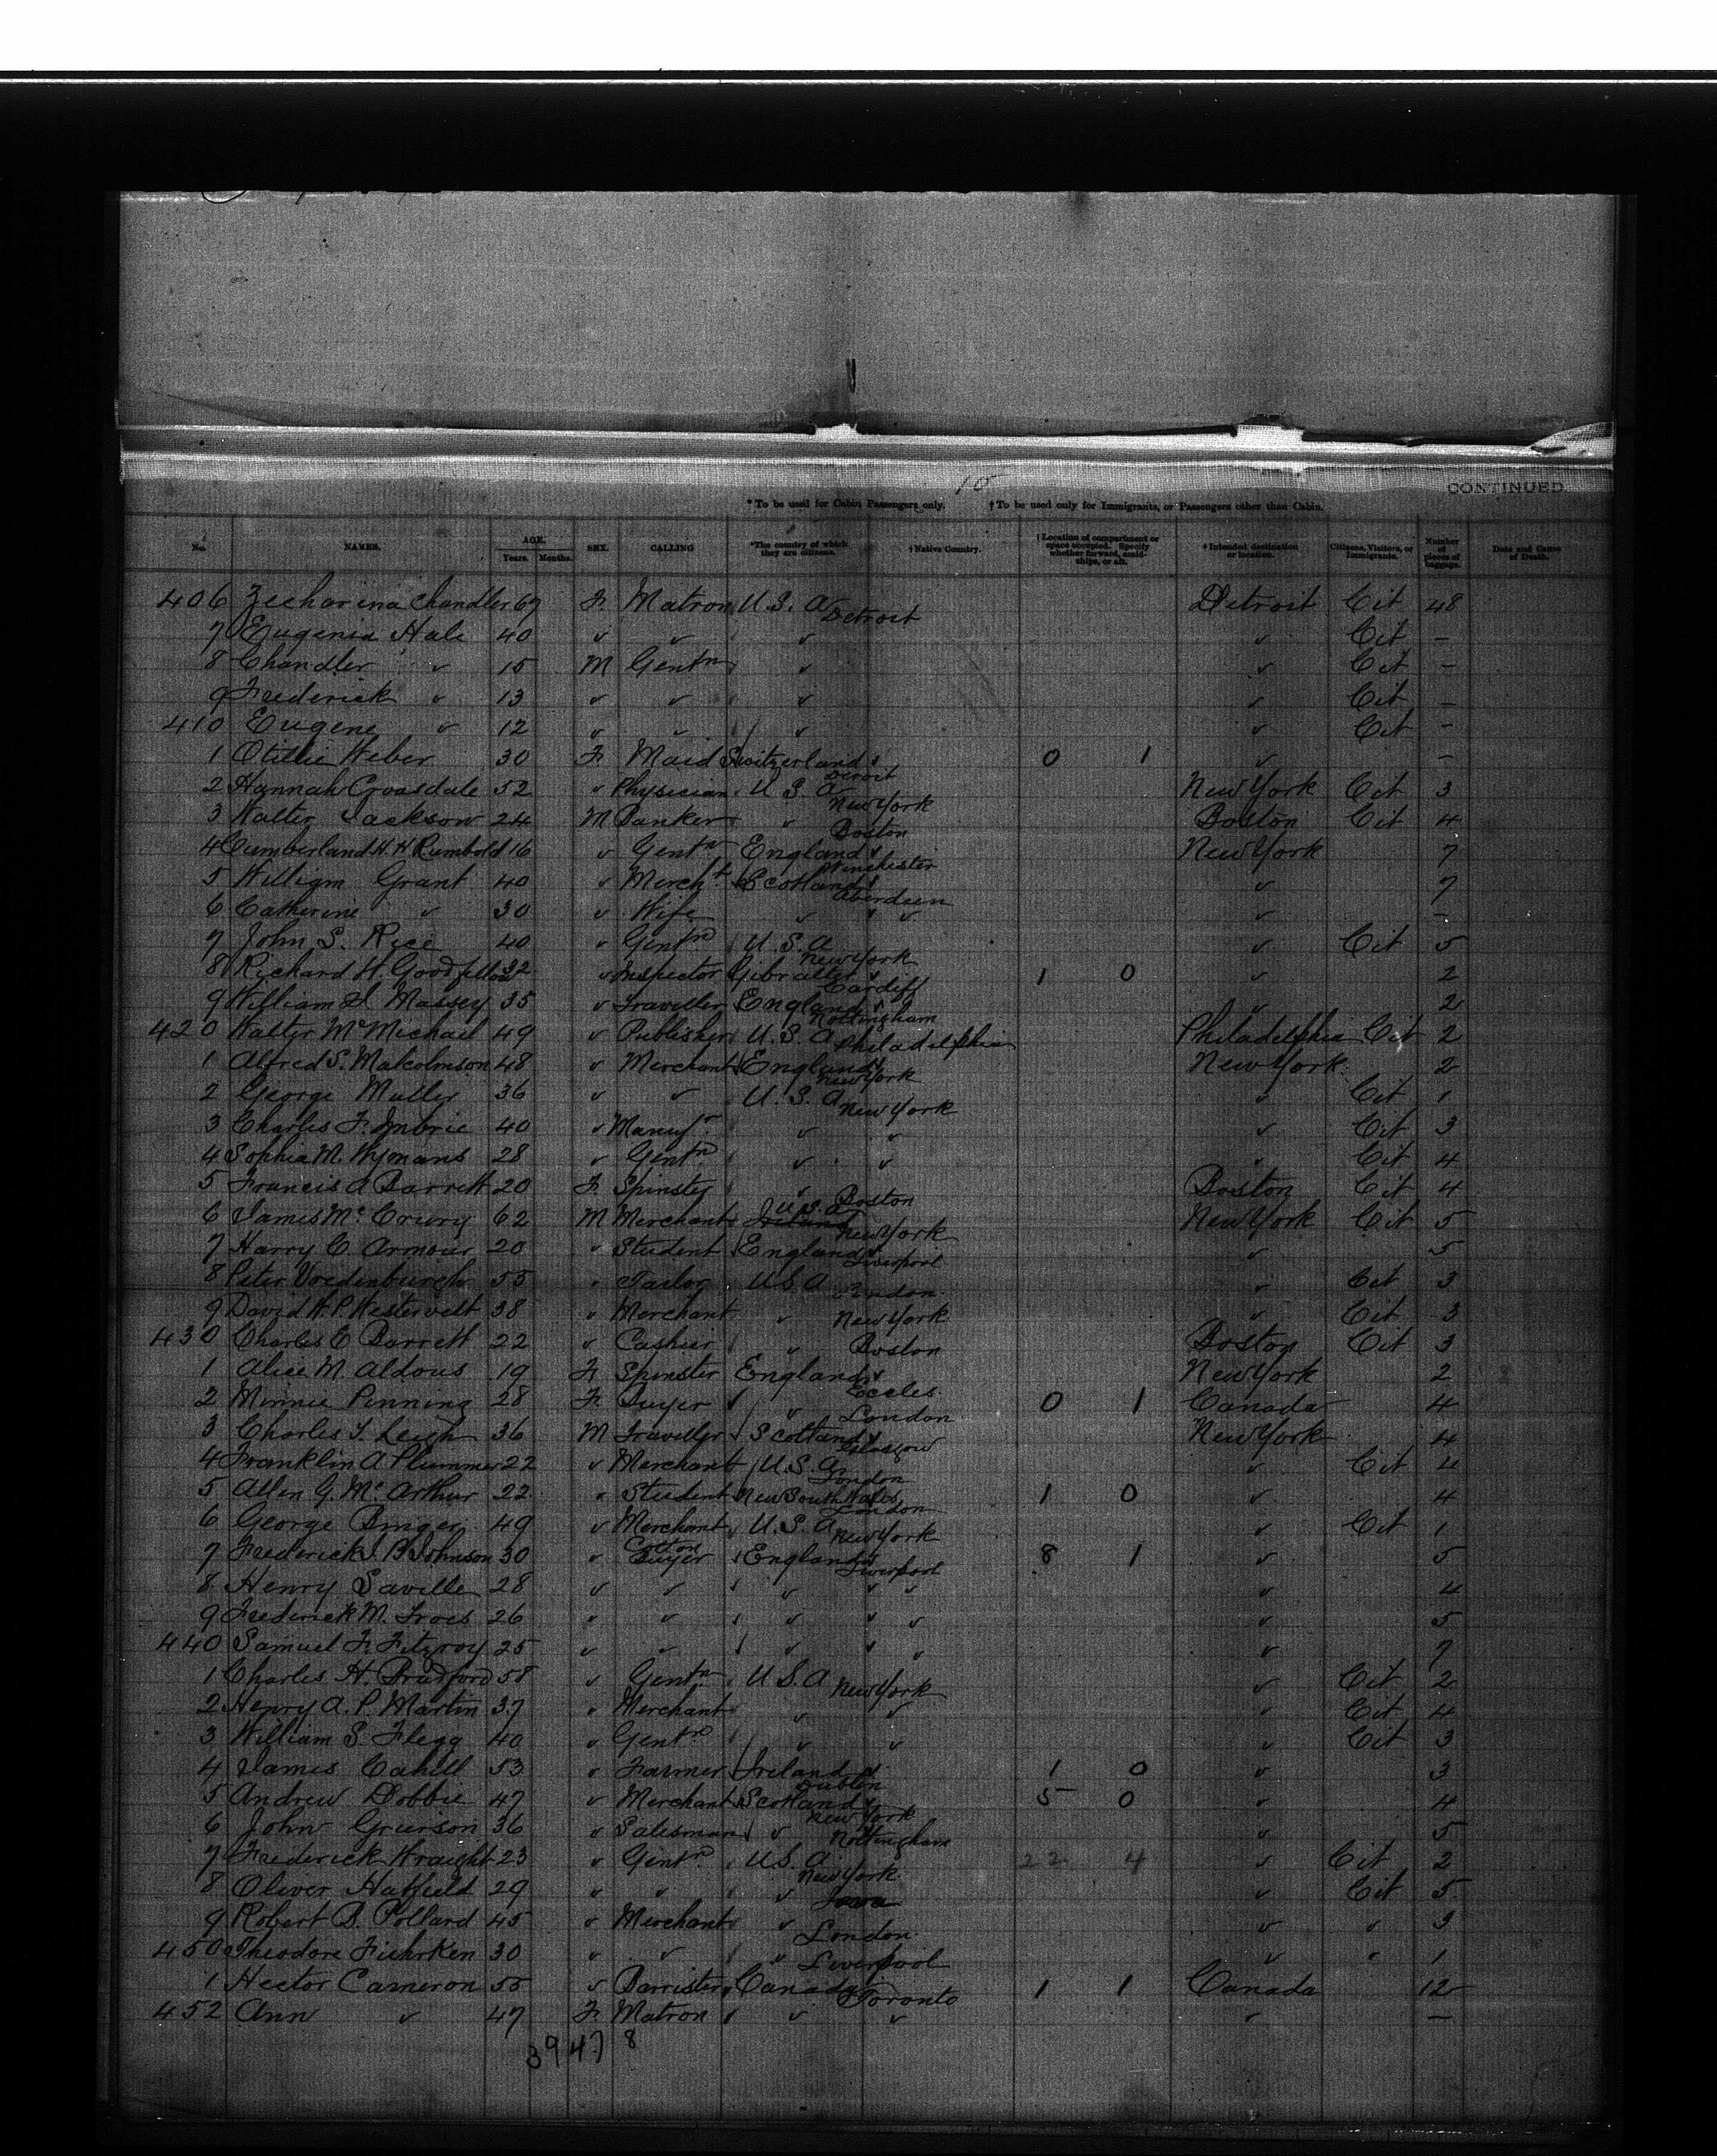 10
CONTINUED.
* To be used for Cabin Passengers only. † To be used only for Immigrants, or Passengers other than Cabin.
No. NAMES. AGE. Years. Months. SEX. CALLING *The country of which they are citizens. †Native Country. †Location of compartment or space occupied. Specify whether forward, amidships, or aft. †Intended destination or location. Citizens, Visitors, or Immigrants. Number of pieces of baggage. Date and Cause of Death.
406 Zecharina Chandler 67 F. Matron U.S.A Detroit Detroit Cit 48
7 Eugenia Hale 40 " " " " Cit –
8 Chandler " 15 M Gentn " " Cit –
9 Frederick " 13 " " " " Cit –
410 Eugene " 12 " " " " Cit –
1 Otillie Weber 30 F. Maid Switzerland Detroit 0 1 " –
2 Hannah Croasdale 52 " Physician U.S.A New York New York Cit 3
3 Walter Jackson 24 M Banker " Boston Boston Cit 4
4 Cumberland H. H Rumbold 16 " Gentn England Winchester New York 7
5 William Grant 40 " Mercht Scotland Aberdeen " 7
6 Catherine " 30 " Wife " " " –
7 John S. Rice 40 " Gentn U.S.A New York " Cit 5
8 Richard H. Goodfellow 32 " Inspector Gibralter Cardiff 1 0 " 2
9 William H. Massey 35 " Traveller England Nottingham " 2
420 Walter McMichael 49 " Publisher U.S.A Philadelphia Philadelphia Cit 2
1 Alfred S. Malcolmson 48 " Merchant England New York New York 2
2 George Muller 36 " " U.S.A New York " Cit 1
3 Charles F. Imbrie 40 " Manufr " " " Cit 3
4 Sophia M. Wymans 28 " Gentn " " " Cit 4
5 Francis A Barrett 20 F. Spinster " Boston Boston Cit 4
6 James McCrury 62 M Merchant Ireland U.S.A New York New York Cit 5
7 Harry C. Armour 20 " Student England Liverpool " 5
8 Peter Vredenburgh 55 " Tailor U.S.A London " Cit 3
9 David W. P. Westervelt 38 " Merchant " New York " Cit 3
430 Charles C Barrett 22 " Cashier " Boston Boston Cit 3
1 Alice M. Aldous 19 F. Spinster England Eccles New York 2
2 Minnie Pinning 28 F. Buyer " London 0 1 Canada 4
3 Charles T. Leigh 36 M Traveller Scotland Glasgow New York 4
4 Franklin A Plummer 22 " Merchant U.S.A London " Cit 4
5 Allen G. McArthur 22 " Student New South Wales London 1 0 " 4
6 George Binger 49 " Merchant U.S.A New York " Cit 1
7 Frederick B Johnson 30 " Cotton Buyer England Liverpool 8 1 " 5
8 Henry Saville 28 " " " " " 4
9 Frederick M. Trois 26 " " " " " 5
440 Samuel F. Fitzroy 25 " " " " " 7
1 Charles H. Bradford 58 " Gentn U.S.A New York " Cit 2
2 Henry A. P. Martin 37 " Merchant " " " Cit 4
3 William S. Flegg 40 " Gentn " " " Cit 3
4 James Cahill 53 " Farmer Ireland Dublin 1 0 " 3
5 Andrew Dobbie 47 " Merchant Scotland New York 5 0 " 4
6 John Grierson 36 " Salesman " Nottingham " 5
7 Frederick Wraight 23 " Gentn U.S.A New York 22 4 " Cit 2
8 Oliver Hatfield 29 " " " Iowa " Cit 5
9 Robert B. Pollard 45 " Merchant " London " " 3
450 Theodore Fiehrken 30 " " " Liverpool " " 1
1 Hector Cameron 55 " Barrister Canada Toronto 1 1 Canada 12
452 Ann " 47 F. Matron " " " –
3947 8